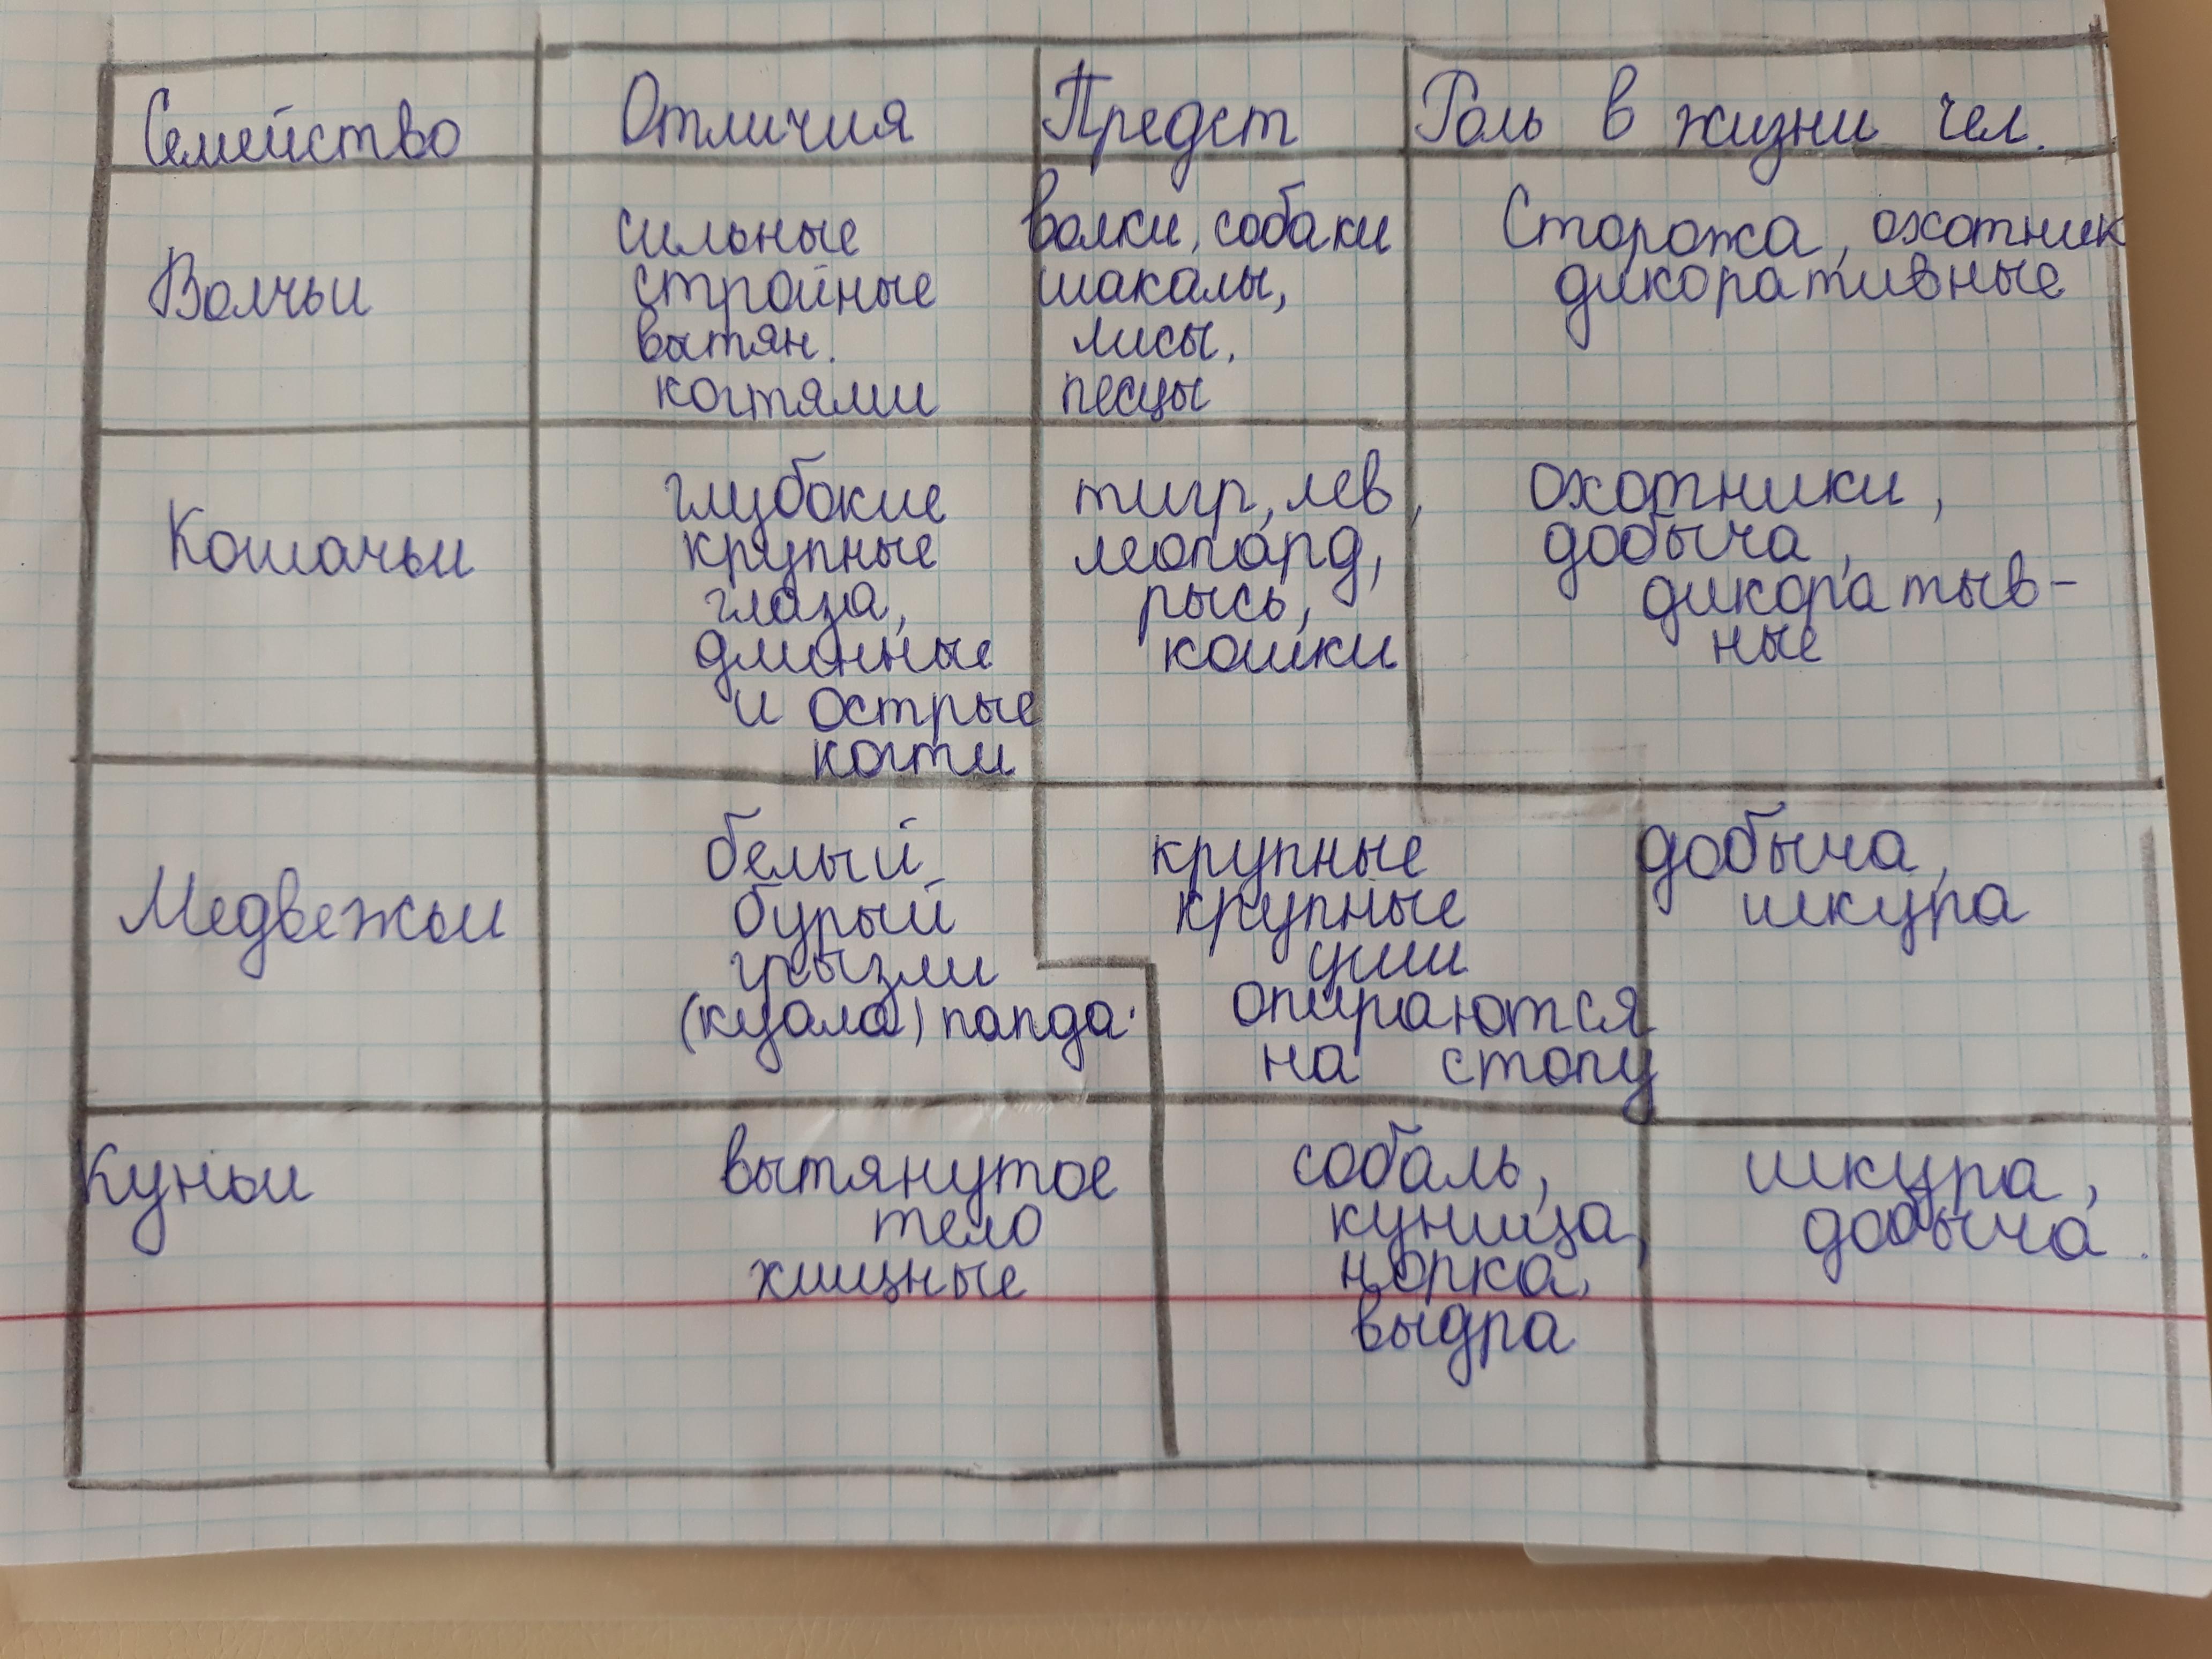 Семейство Отличия Предст Роль в жизни чел.
Волчьи
сильные
стройные
вытян.
когтями
волки, собаки
шакалы,
лисы,
песцы
Сторожа, охотник
дикоративные
Кошачьи
глубокие
крупные
глаза,
длинные
и острые
когти
тигр, лев,
леопард,
рысь,
кошки
охотники,
добыча,
дикоратыв-
ные
Медвежьи
белый
бурый
грызли
(куала) панда.
крупные
крупные
уши
опираются
на стопу
добыча,
шкура
Куньи
вытянутое
тело
хищные
собаль,
куница,
норка,
выдра
шкура,
добыча.